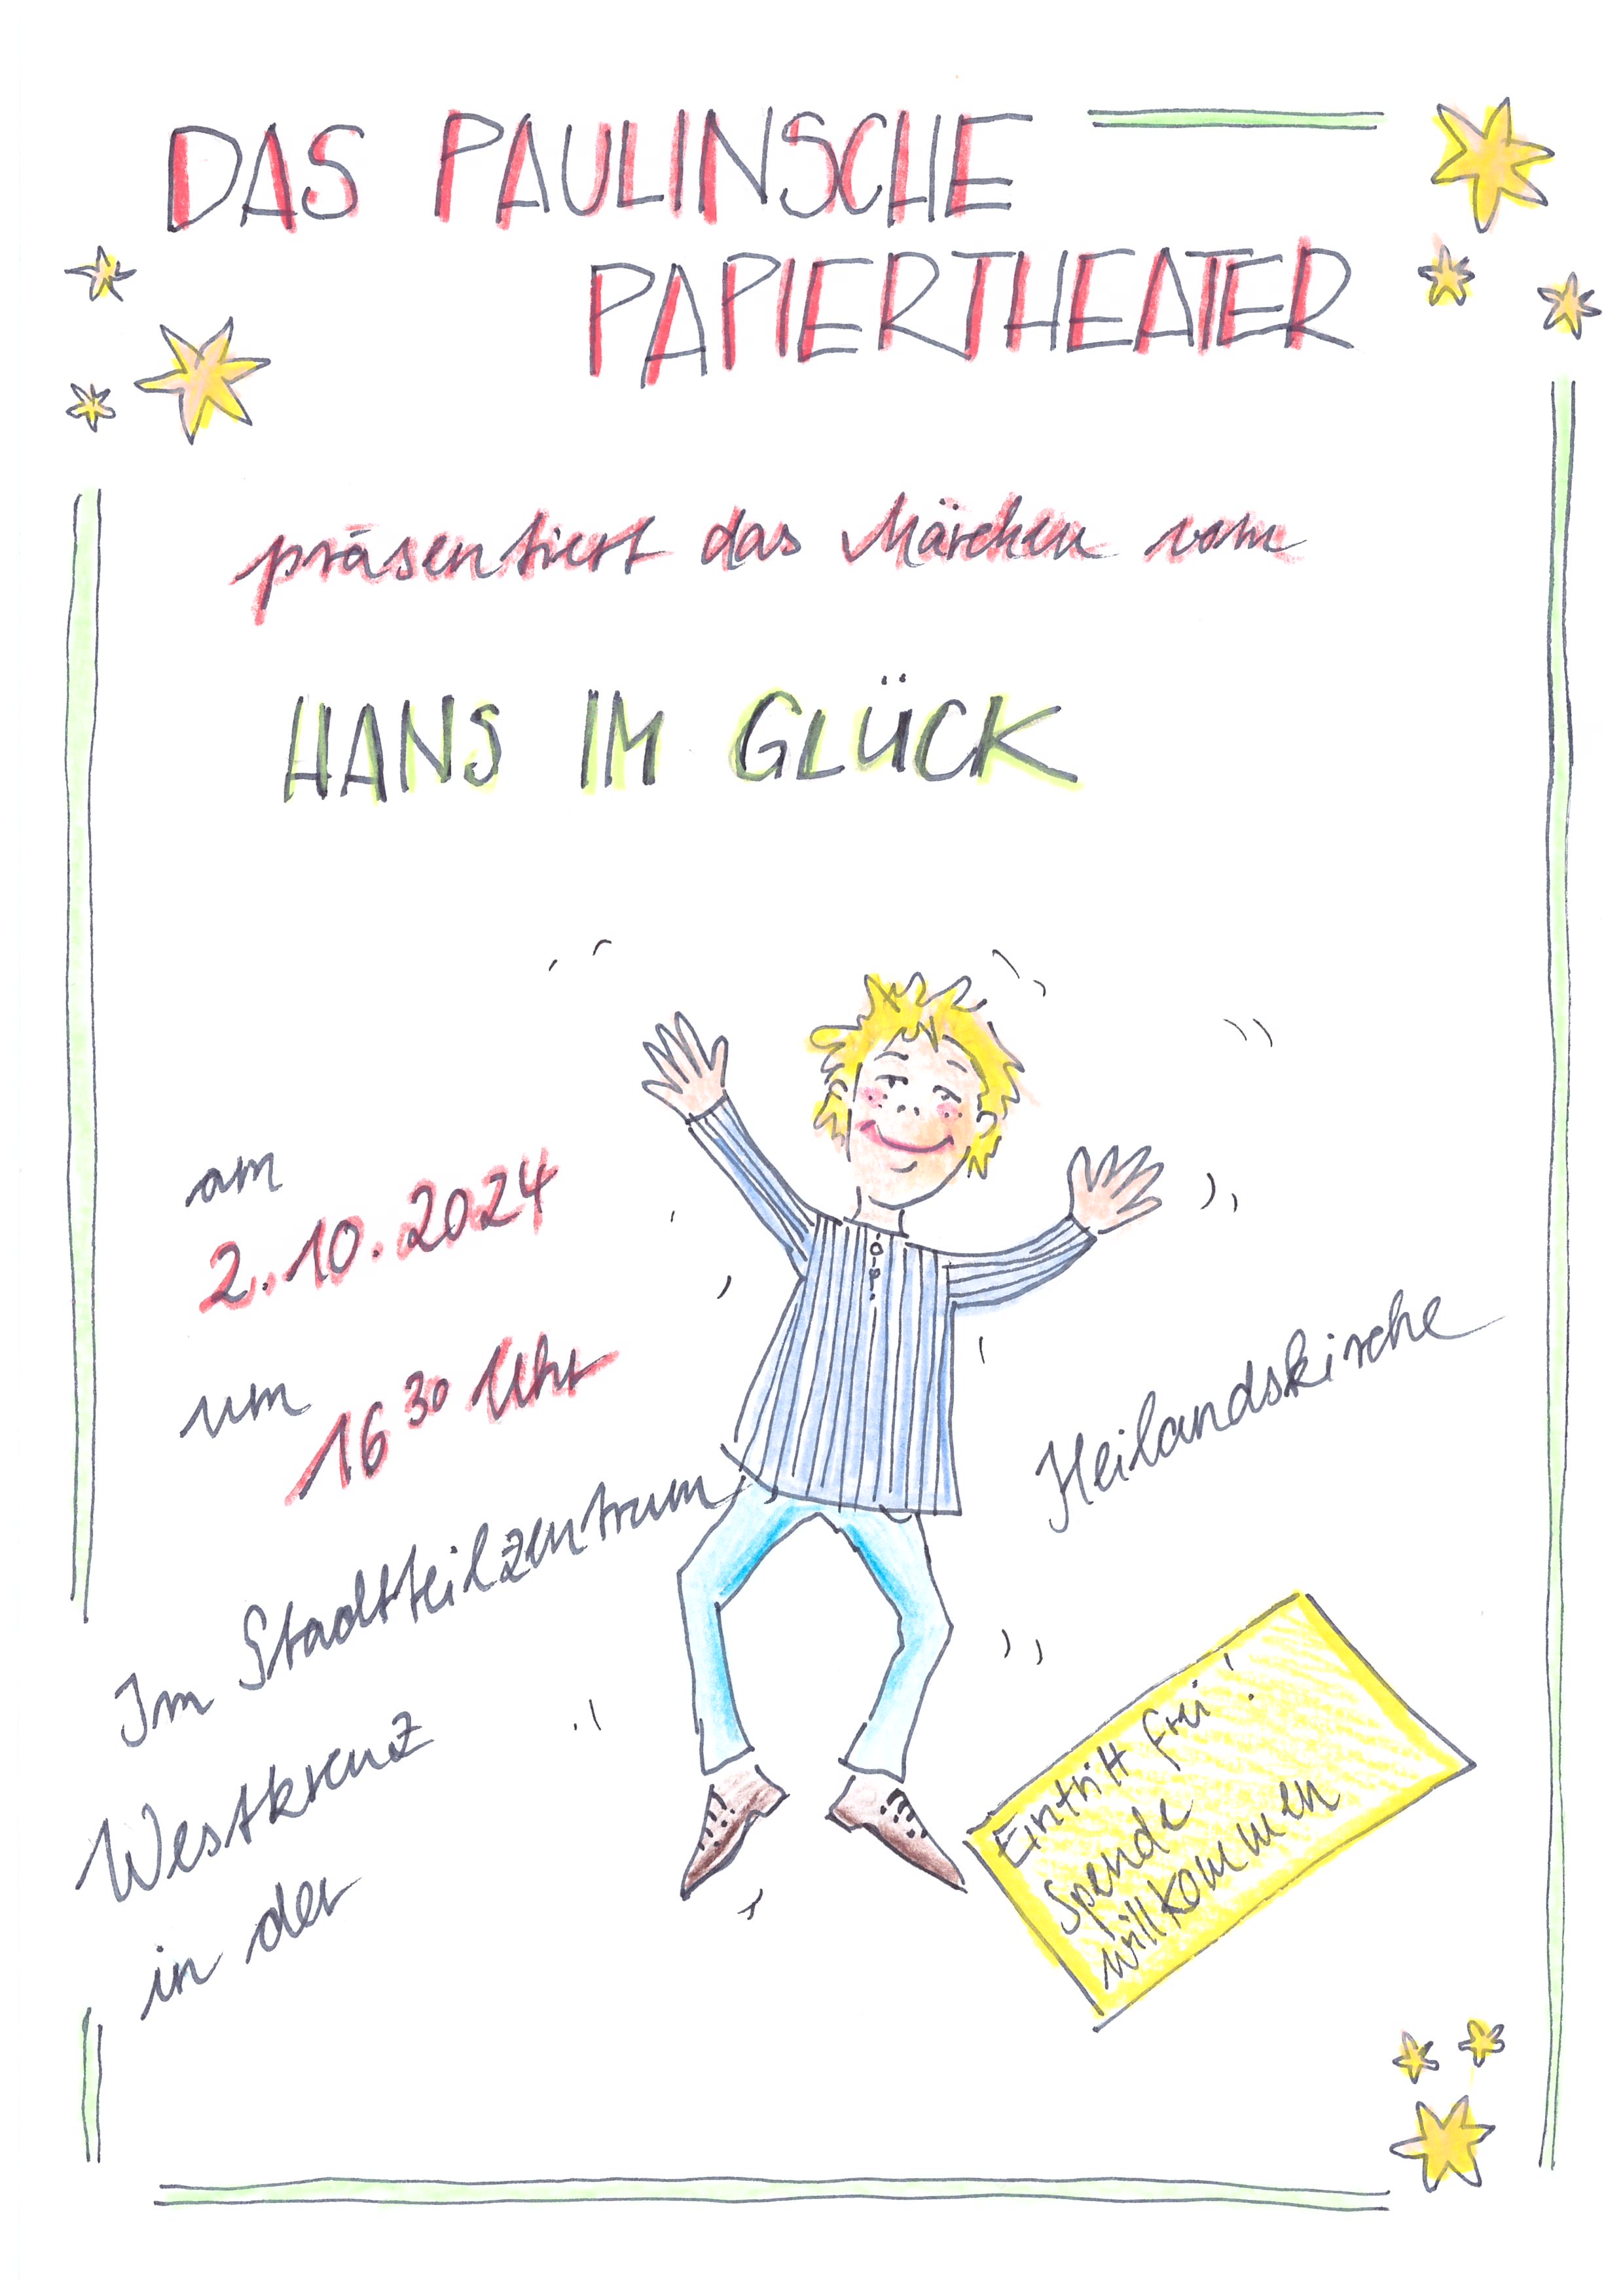 DAS PAULINSCHE
PAPIERTHEATER
präsentiert das Märchen vom
HANS IM GLÜCK
am
2.10.2024
um
16 30 Uhr
Im Stadtteilzentrum
Westkreuz
in der
Heilandskirche
Eintritt frei!
Spende
willkommen